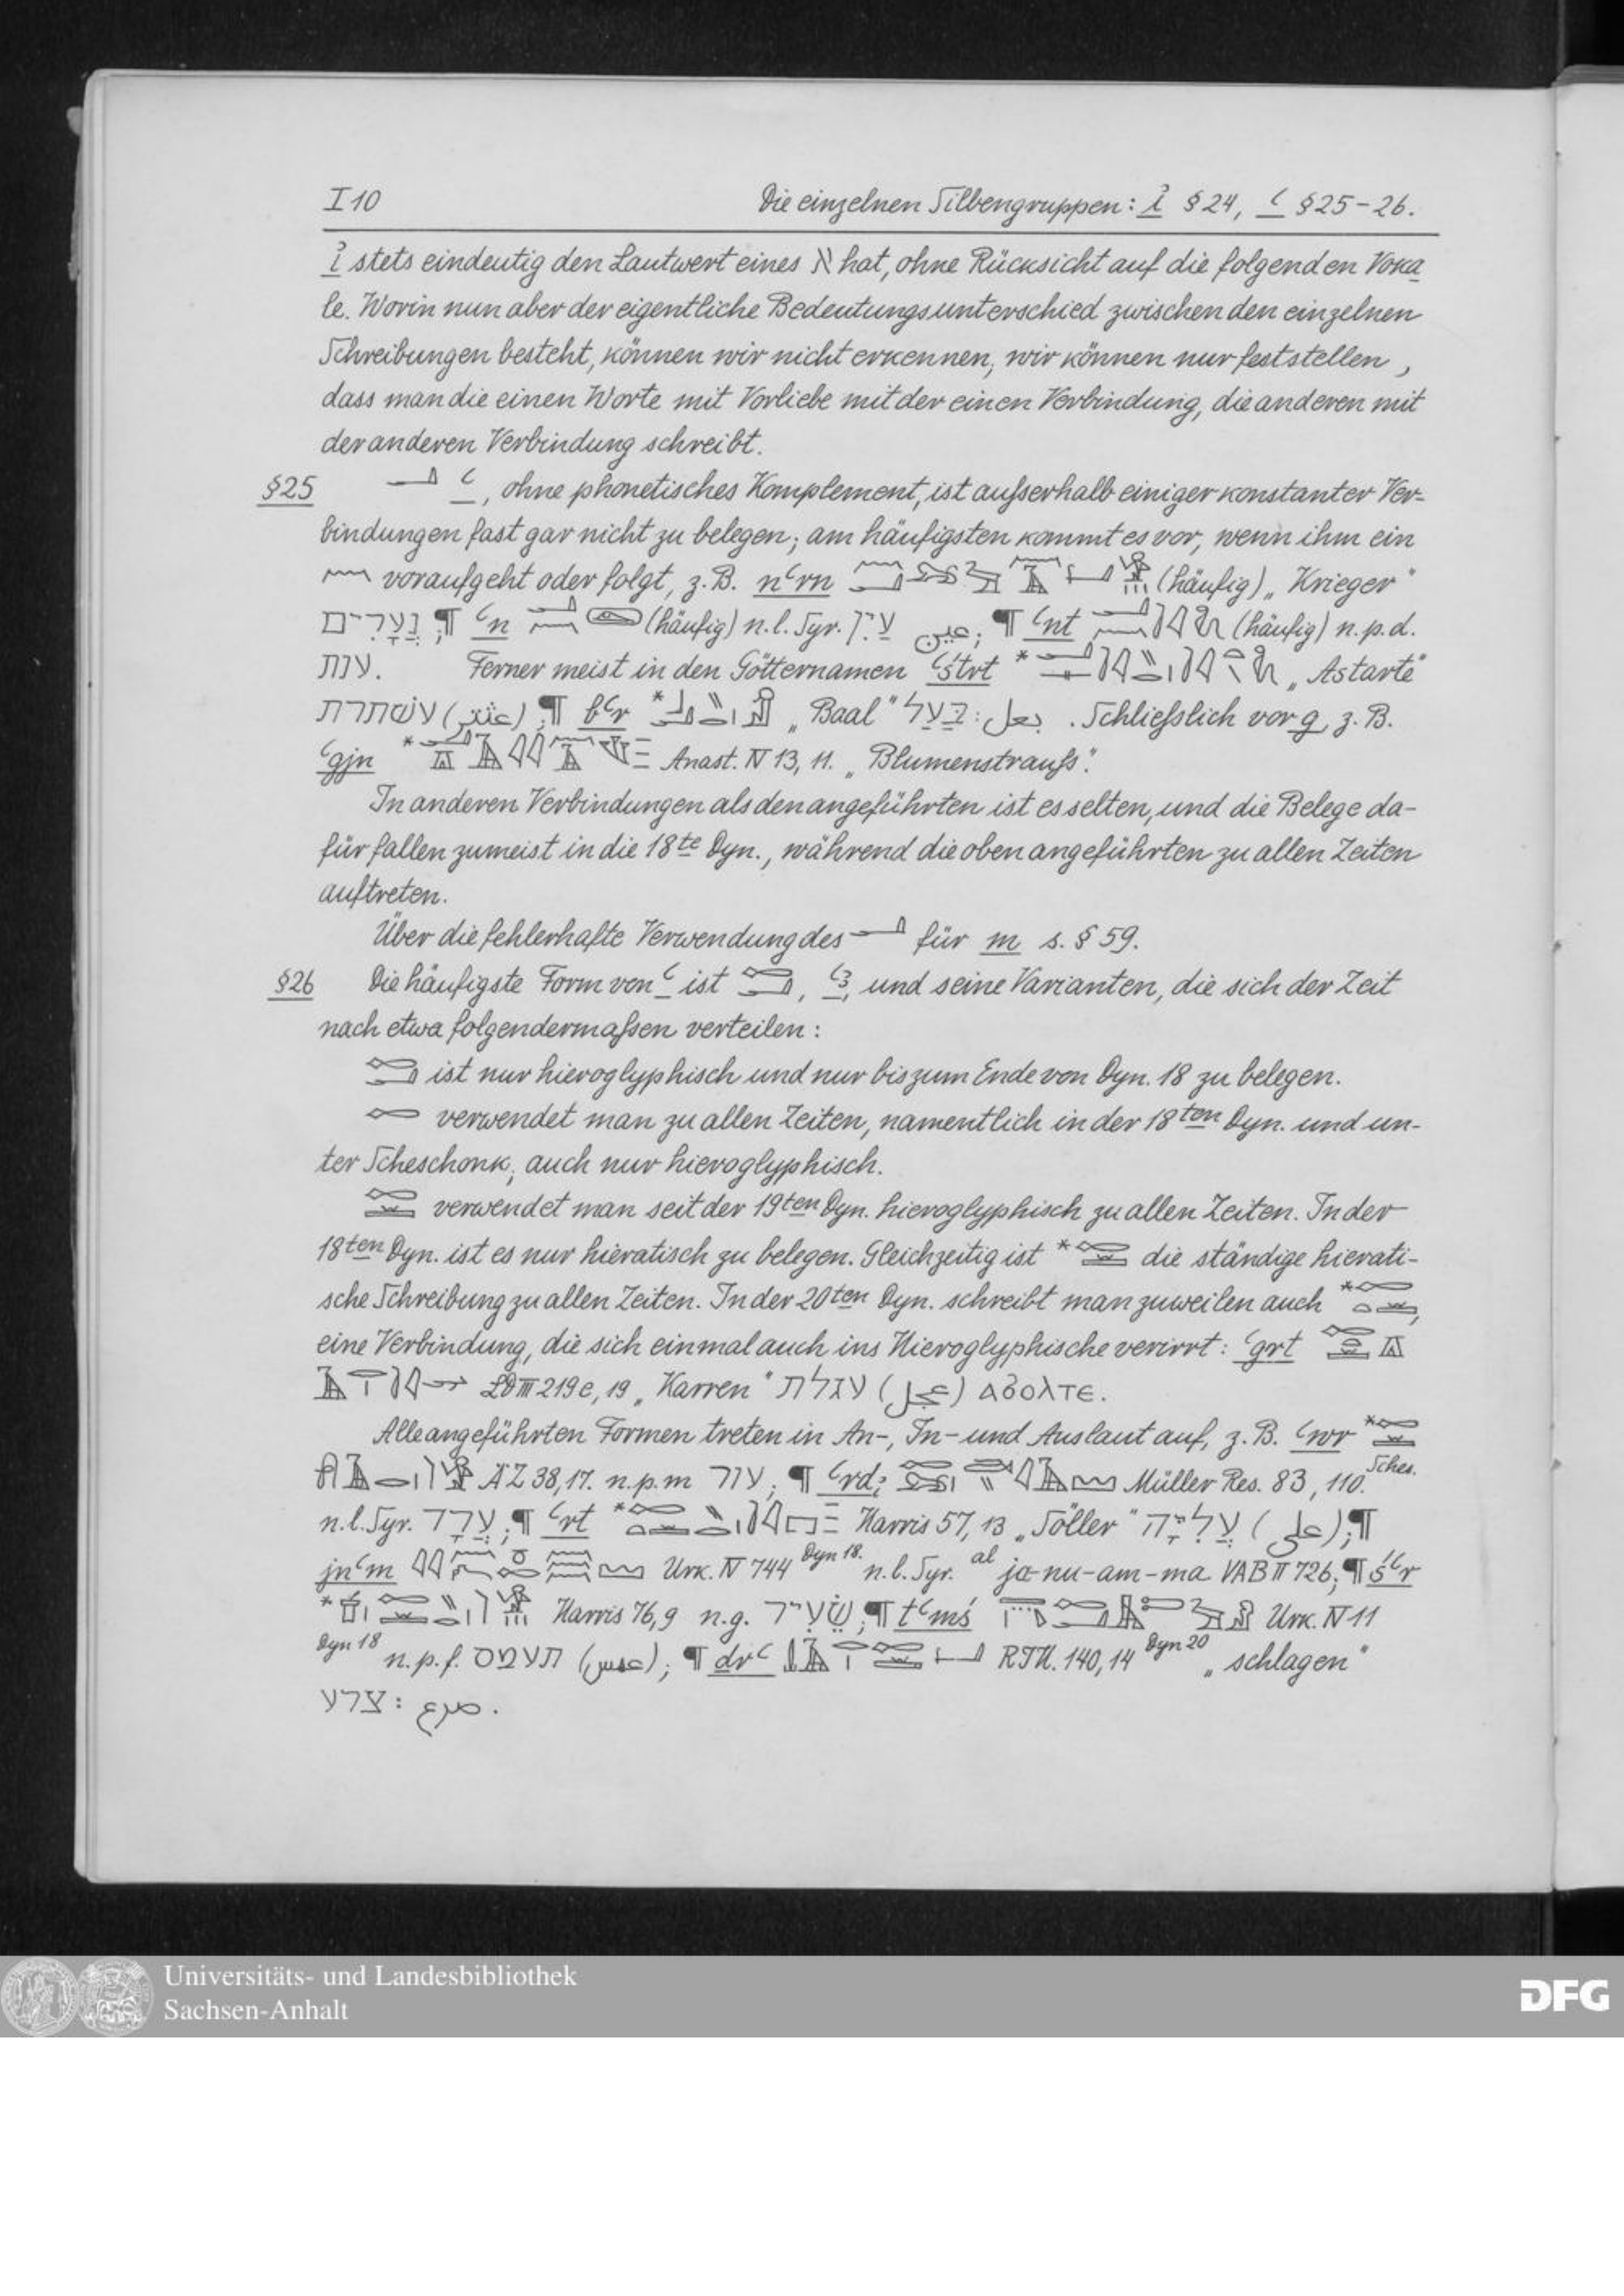 I 10 Die einzelnen Silbengruppen: ỉ § 24, ʿ § 25-26.
ỉ stets eindeutig den Lautwert eines א hat, ohne Rücksicht auf die folgenden Voka
le. Worin nun aber der eigentliche Bedeutungsunterschied zwischen den einzelnen
Schreibungen besteht, können wir nicht erkennen, wir können nur feststellen,
dass man die einen Worte mit Vorliebe mit der einen Verbindung, die anderen mit
der anderen Verbindung schreibt.
§25 𓂝 ʿ, ohne phonetisches Komplement, ist außerhalb einiger konstanter Ver-
bindungen fast gar nicht zu belegen; am häufigsten kommt es vor, wenn ihm ein
𓈖 voraufgeht oder folgt, z. B. nʿrn (häufig) „Krieger"
נְעָרִים; ¶ ʿn (häufig) n. l. Syr. עַיִן عين; ¶ ʿnt (häufig) n. p. d.
ענת. Ferner meist in den Götternamen ʿśtrt * „Astarte"
עשתרת (عثتر); ¶ bʿr * „Baal" בַּעַל: بعل. Schließlich vor g, z. B.
ʿgjn * Anast. IV 13, 11. „Blumenstrauß".
In anderen Verbindungen als den angeführten ist es selten, und die Belege da-
für fallen zumeist in die 18te Dyn., während die oben angeführten zu allen Zeiten
auftreten.
Über die fehlerhafte Verwendung des 𓂝 für m s. § 59.
§26 Die häufigste Form von ʿ ist , ʿꜣ, und seine Varianten, die sich der Zeit
nach etwa folgendermaßen verteilen:
ist nur hieroglyphisch und nur bis zum Ende von Dyn. 18 zu belegen.
verwendet man zu allen Zeiten, namentlich in der 18ten Dyn. und un-
ter Scheschonk, auch nur hieroglyphisch.
verwendet man seit der 19ten Dyn. hieroglyphisch zu allen Zeiten. In der
18ten Dyn. ist es nur hieratisch zu belegen. Gleichzeitig ist * die ständige hierati-
sche Schreibung zu allen Zeiten. In der 20ten Dyn. schreibt man zuweilen auch *,
eine Verbindung, die sich einmal auch ins Hieroglyphische verirrt: ʿgrt
LD III 219e, 19 „Karren" עגלת (عجل) ⲁϭⲟⲗⲧⲉ.
Alle angeführten Formen treten in An-, In- und Auslaut auf, z. B. ʿwr *
ÄZ 38, 17. n. p. m עור; ¶ ʿrdỉ Müller Res. 83, 110. Sches.
n. l. Syr. עֲרָד; ¶ ʿrt * Harris 57, 13 „Söller" עֲלִיָּה (على); ¶
jnʿm Urk. IV 744 Dyn 18. n. l. Syr. al ja-nu-am-ma VAB II 726; ¶ śʿr
* Harris 76, 9 n. g. שֵׂעִיר; ¶ tʿmś Urk. IV 11
Dyn 18 n. p. f. תעמס (عمس); ¶ drʿ RTH. 140, 14 Dyn 20 „schlagen"
צרע: صرع.
Universitäts- und Landesbibliothek
Sachsen-Anhalt
DFG